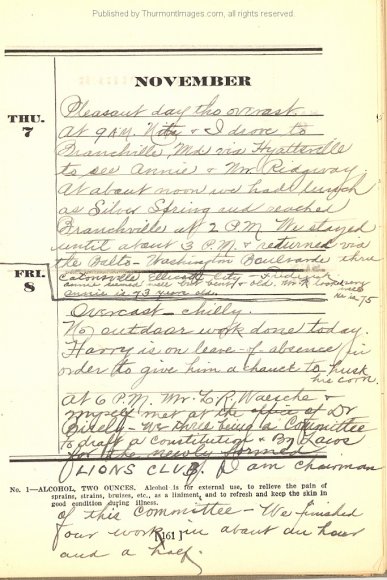 Published by ThurmontImages.com, all rights reserved.
NOVEMBER
THU.
7
Pleasant day tho overcast
At 9 A.M. & I drove to
Branchville Md via Hyattsville
to see Annie & Wm Ridgway
At about noon we had lunch
at Silver Spring and reached
Branchville at 2 P.M. We stayed
until about 3 P.M. & returned via
the Balto-Washington Boulevarde thru
Catonsville Ellicott City - Frederick
Annie seemed well but bent & old. Wm R looks very
well
Annie is 73 years old.
He is 75
FRI.
8
Overcast - chilly.
No outdoor work done today.
Harry is on leave of absence in
order to give him a chance to husk
his corn.
At 6 P.M. Mr. E.R. Waesche &
myself met at the office of Dr
Birely - We three being a Committee
to draft a Constitution & By Laws
for the newly formed
LIONS CLUB. I am chairman
No. 1—ALCOHOL, TWO OUNCES. Alcohol is for external use, to relieve the pain of
sprains, strains, bruises, etc., as a liniment, and to refresh and keep the skin in
good condition during illness.
of this Committee - We finished
our work in about an hour
[161]
and a half.